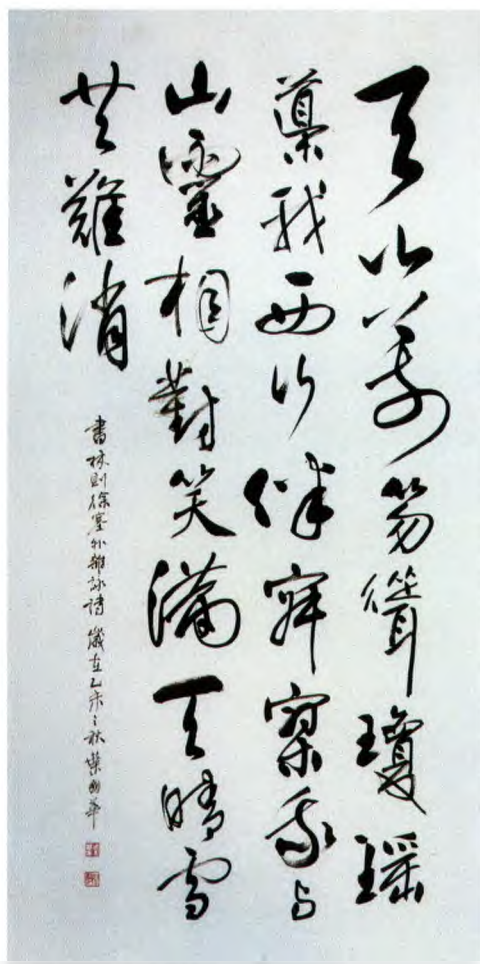 天山萬笏聳瓊瑶
導我西行伴寂寥我与
山靈相對笑滿天晴雪
共難消
書林則徐塞外雜詠詩 歲在乙未之秋 葉國華